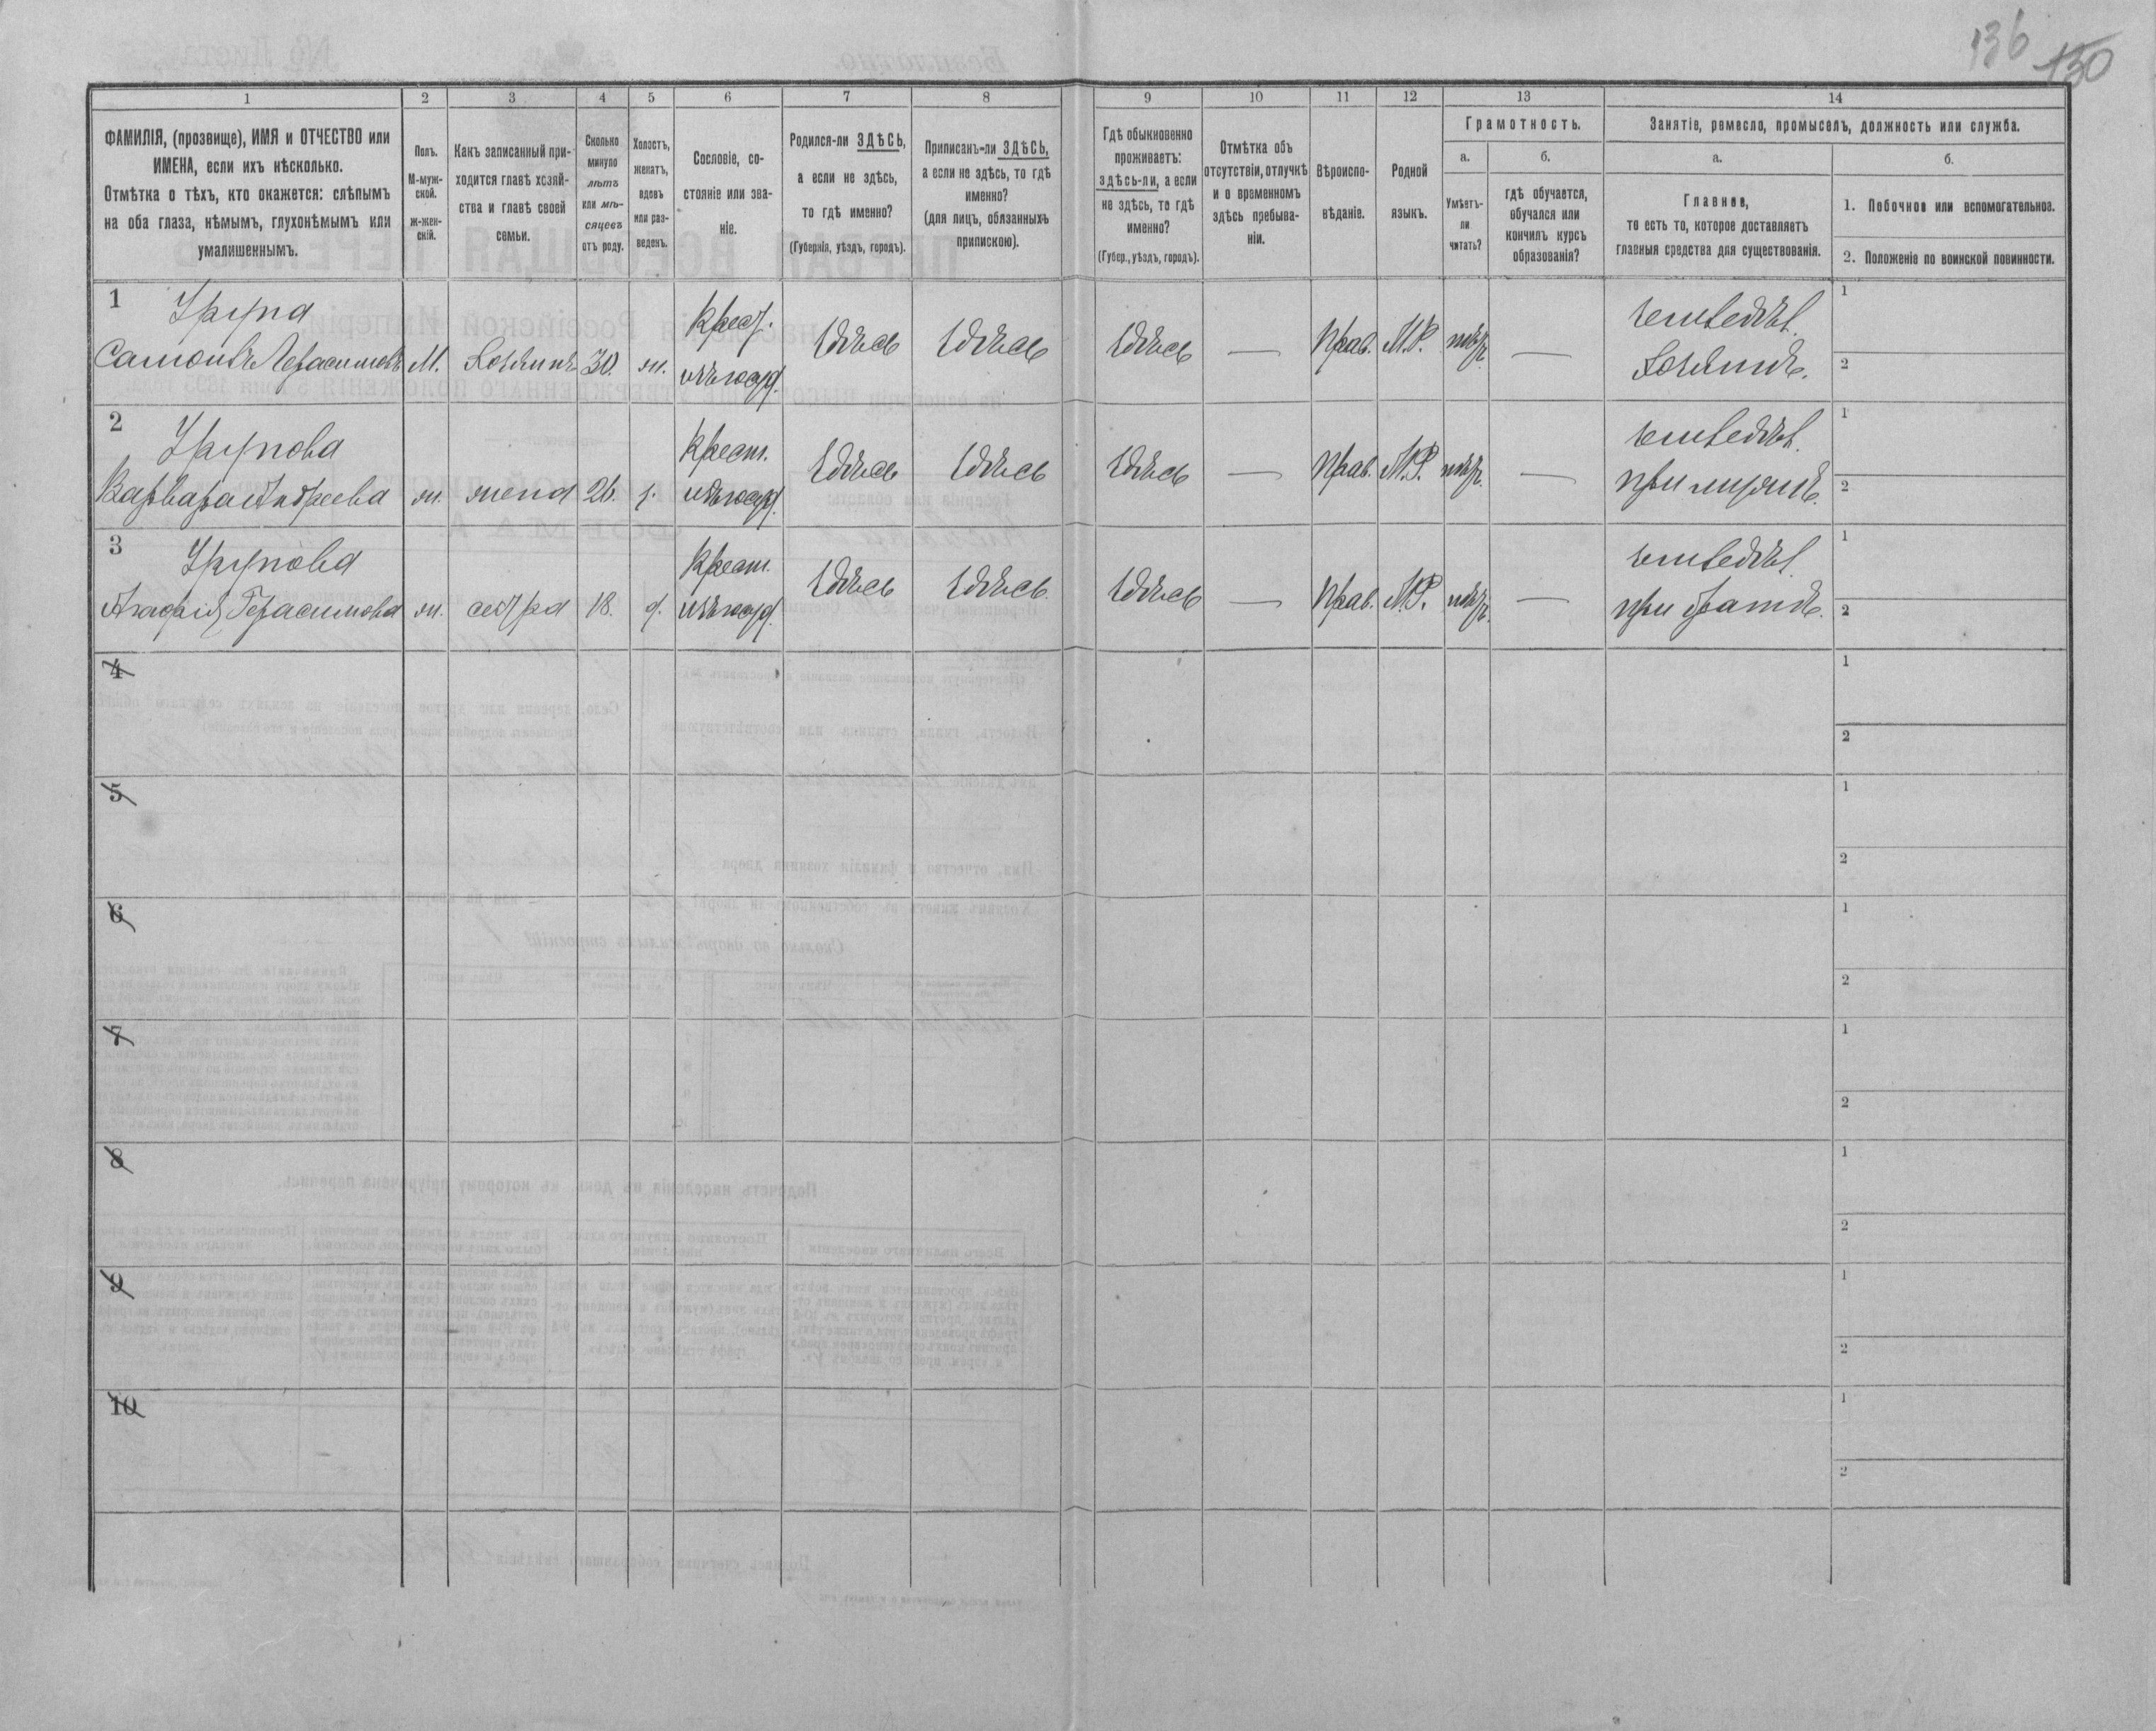 136 130
1 2 3 4 5 6 7 8 9 10 11 12 13 14
ФАМИЛІЯ, (прозвище), ИМЯ и ОТЧЕСТВО или
ИМЕНА, если ихъ нѣсколько.
Отмѣтка о тѣхъ, кто окажется: слѣпымъ
на оба глаза, нѣмымъ, глухонѣмымъ или
умалишеннымъ.
Полъ.
М-муж-
ской.
ж-жен-
скій.
Какъ записанный при-
ходится главѣ хозяй-
ства и главѣ своей
семьи.
Сколько
минуло
лѣтъ
или мѣ-
сяцевъ
отъ роду.
Холостъ,
женатъ,
вдовъ
или раз-
веденъ.
Сословіе, со-
стояніе или зва-
ніе.
Родился-ли ЗДѢСЬ,
а если не здѣсь,
то гдѣ именно?
(Губернія, уѣздъ, городъ).
Приписанъ-ли ЗДѢСЬ,
а если не здѣсь, то гдѣ
именно?
(для лицъ, обязанныхъ
припискою).
Гдѣ обыкновенно
проживаетъ:
здѣсь-ли, а если
не здѣсь, то гдѣ
именно?
(Губер., уѣздъ, городъ).
Отмѣтка объ
отсутствіи, отлучкѣ
и о временномъ
здѣсь пребыва-
ніи.
Вѣроиспо-
вѣданіе.
Родной
языкъ.
Грамотность.
а.
Умѣетъ-
ли
читать?
б.
гдѣ обучается,
обучался или
кончилъ курсъ
образованія?
Занятіе, ремесло, промыселъ, должность или служба.
а.
Главное,
то есть то, которое доставляетъ
главныя средства для существованія.
б.
1. Побочное или вспомогательное.
2. Положеніе по воинской повинности.
1
Самонъ Герасимовъ М. Хозяинъ 30. ж. Крест. изъ госуд. Здѣсь Здѣсь Здѣсь — Прав. М.Р. нѣтъ —
земледѣл.
Хозяинъ.
1
2
2
Варвара Андреева ж. жена 26. з. Крест. изъ госуд. Здѣсь Здѣсь Здѣсь — Прав. М.Р. нѣтъ —
земледѣл.
при мужѣ.
1
2
3
Агафія Герасимова ж. сестра 18. д. Крест. изъ госуд. Здѣсь Здѣсь Здѣсь — Прав. М.Р. нѣтъ —
земледѣл.
при братѣ.
1
2
4
1
2
5
1
2
6
1
2
7
1
2
8
1
2
9
1
2
10
1
2